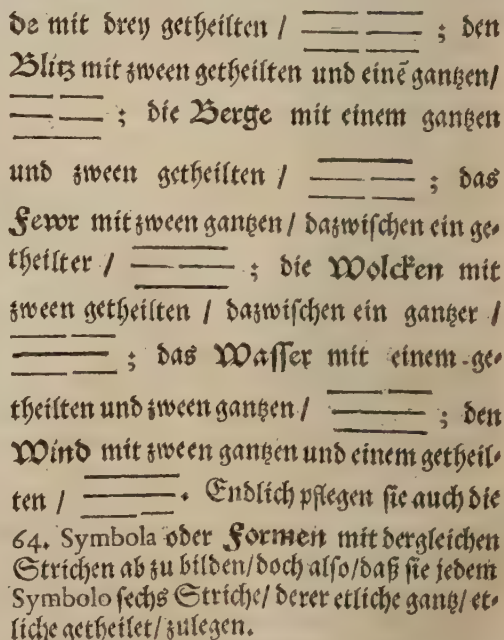 de mit drey getheilten / ; den
Blitz mit zween getheilten und einē gantzen/
; die Berge mit einem gantzen
und zween getheilten / ; das
Fewr mit zween gantzen / dazwischen ein ge-
theilter / ; die Wolcken mit
zween getheilten / dazwischen ein gantzer /
; das Wasser mit einem ge-
theilten und zween gantzen / ; den
Wind mit zween gantzen und einem getheil-
ten / . Endlich pflegen sie auch die
64. Symbola oder Formen mit dergleichen
Strichen ab zu bilden/ doch also/ daß sie jedem
Symbolo sechs Striche/ derer etliche gantz/ et-
liche getheilet/ zulegen.